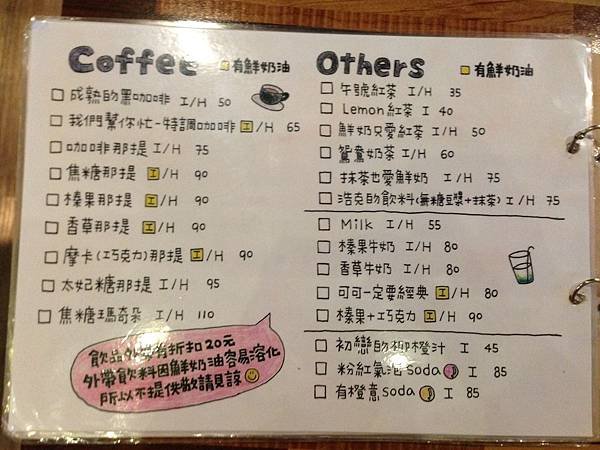 Coffee 有鮮奶油
成熟的黑咖啡 I/H 50
我們幫你忙-特調咖啡 I/H 65
咖啡那提 I/H 75
焦糖那提 I/H 90
榛果那提 I/H 90
香草那提 I/H 90
摩卡(巧克力)那提 I/H 90
太妃糖那提 I/H 95
焦糖瑪奇朵 I/H 110
飲品外帶有折扣20元
外帶飲料因鮮奶油容易溶化
所以不提供敬請見諒
Others 有鮮奶油
午號紅茶 I/H 35
Lemon紅茶 I 40
鮮奶只愛紅茶 I/H 50
鴛鴦奶茶 I/H 60
抹茶也愛鮮奶 I/H 75
浩克的飲料(無糖豆漿+抹茶) I/H 75
Milk I/H 55
榛果牛奶 I/H 80
香草牛奶 I/H 80
可可一定要經典 I/H 80
榛果+巧克力 I/H 90
初戀的柳橙汁 I 45
粉紅氣泡soda I 85
有橙意soda I 85